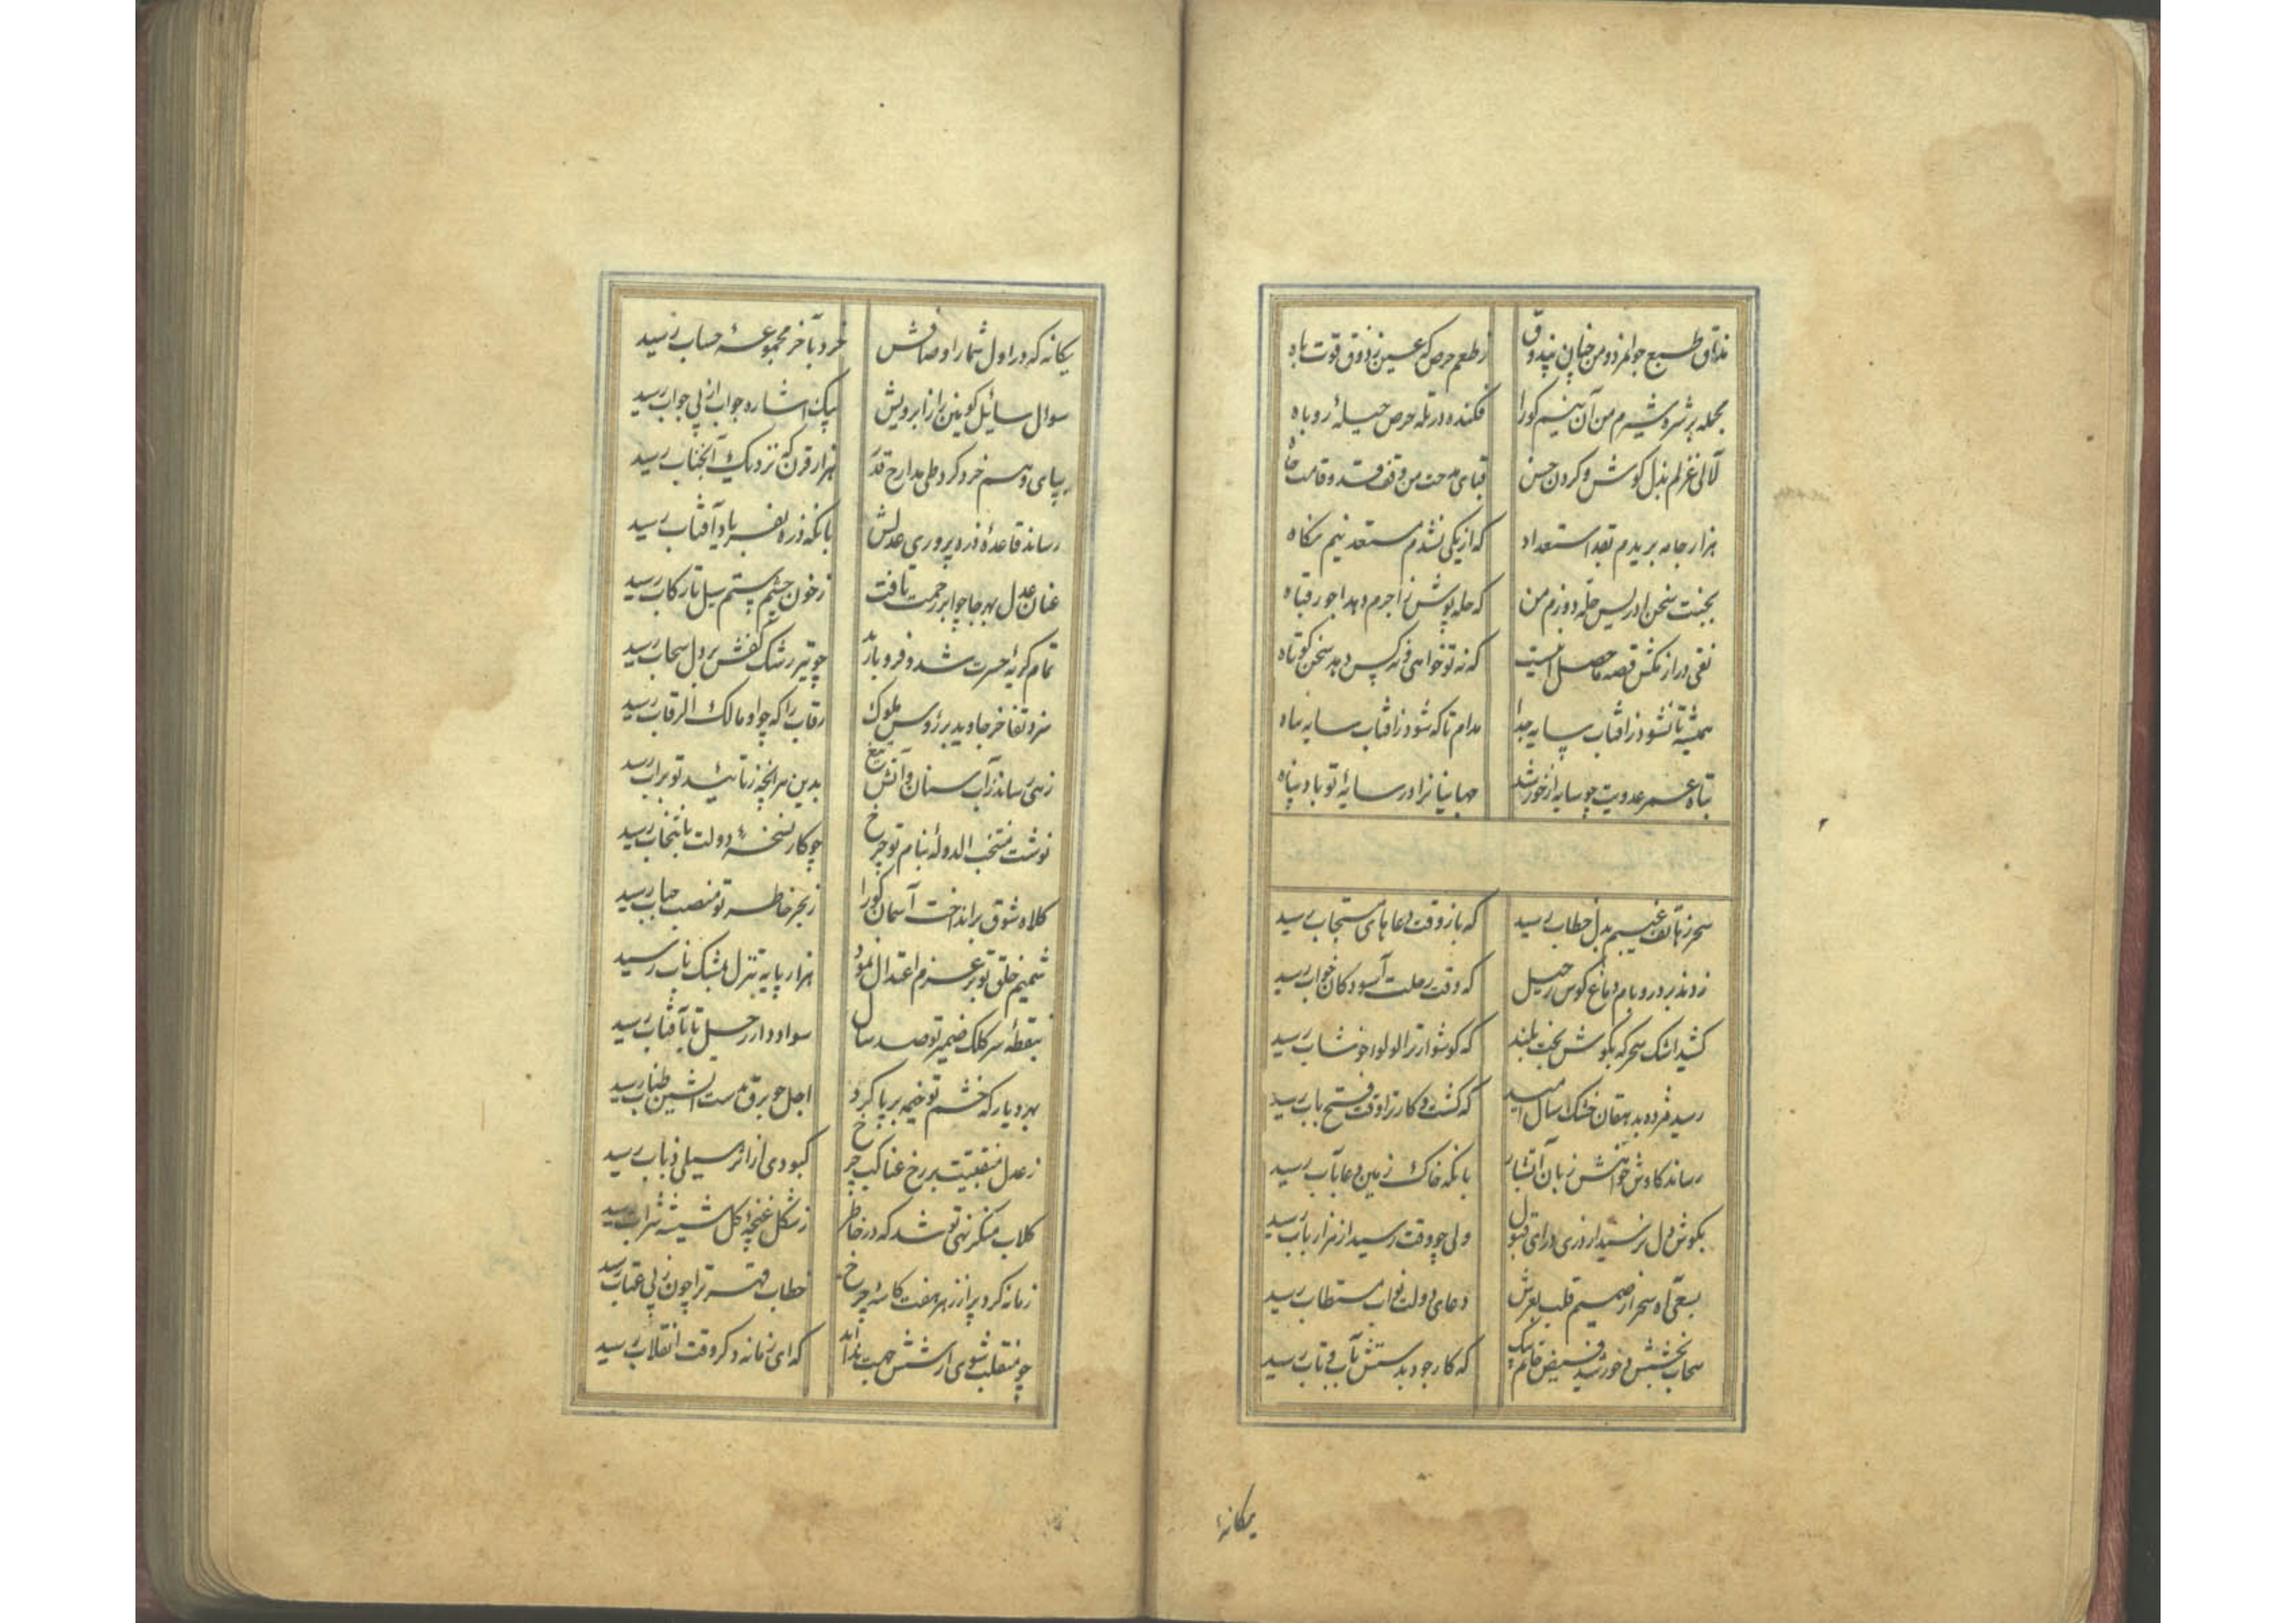 مذاق طبع جوانمرد و من چنان بیذوق ز طعم حرص که عسین ز ذوق قوت باه
بحمله پر شر و شیرم من آن نیم کورا فکنده در تله حرص حیلهٔ روباه
لآلی غزلم بذل گوش و گردن حسن قبای مدحت من وقف قد و قامت جاه
هزار جامه بریدم بقد استعداد که از یکی نشدم مستعد نیم نگاه
بجنت سخن ادریس حله دوزم من که حله پوش
نفی دراز مکش قصه ماحصل اینست که نه تو خواهی و نه کس دهد سخن کوتاه
همیشه تا نشود ز آفتاب سایه جدا مدام تا که شود ز آفتاب سایه سیاه
تباه عمر عدویت چو سایه از خورشید جهانیانرا در سایهٔ تو باد پناه
سحر ز هاتف غیبم بدل خطاب رسید که باز وقت دعاهای مستجاب رسید
زدند بر در و بام دماغ کوس رحیل که وقت رحلت آسودگان خواب رسید
کشید اشک سحرگه بگوش بخت بلند که گوشوار ترا لولو خوشاب رسید
رسید مژده بدهقان خشک سال امید که کشت و کار ترا وقت فتح باب رسید
رساند کاوش خواهش زبان آتشبار بآنکه خاک زمین دعا بآب رسید
بگوش دل نرسید از دری درای قبول ولی چو وقت رسید از هزار باب رسید
بسعی آه سحر از صمیم قلب بعرش دعای دولت نواب مستطاب رسید
سحاب بخشش و خورشید فیض خاتم بیک که کار جود بدستش بآب و تاب رسید
یگانه
یگانه که در اول شمار اوصافش خرد بآخر مجموعهٔ حساب رسید
سوال سائل کونین را ز ابرویش بیک اشاره جواب از پی جواب رسید
بپای وهم خرد کرد طی مدارج قدر هزار قرن که نزدیک آنجناب رسید
رساند قاعدهٔ ذره پروری عدلش بآنکه ذره بفریاد آفتاب رسید
عنان عدل بهر جا چو ابر رحمت تافت ز خون چشم ستم سیل تا رکاب رسید
تمام گریهٔ حسرت شد و فرو بارید چو تیر رشک کفش بر دل سحاب رسید
سزد تفاخر جاوید بر رؤس ملوک رقاب را که چو او مالک الرقاب رسید
زهی رساند ز آب سنان و آتش تیغ بدین سرانچه ز تائید تو بر آب رسید
نوشت منتخب الدوله بنام تو چرخ چو کار نسخهٔ دولت بانتخاب رسید
کلاه شوق برانداخت آسمان کورا ز بحر خاطر تو منصب حباب رسید
شمیم خلق تو بر عزم اعتدال نمود هزار پایه تنزل بمشک ناب رسید
بنقطهٔ سر کلک ضمیر تو صد سال سواد دار رحل تا بآفتاب رسید
بهر دیار که خشم تو خیمه بر پا کرد اجل چو برق بدست آتشین طناب رسید
ز عدل منقبتت بر رخ عناکب چرخ کبودی از اثر سیلی ذباب رسید
گلاب منکر نهی تو شد که در خاطر ز شکل غنچهٔ گل شیشه شراب رسید
زمانه کرد پر از زهر هفت کاسهٔ چرخ خطاب قهر ترا چون ز پی عتاب رسید
چو منقلب شوی از شش جهت ندا آید که ای زمانه دگر وقت انقلاب رسید